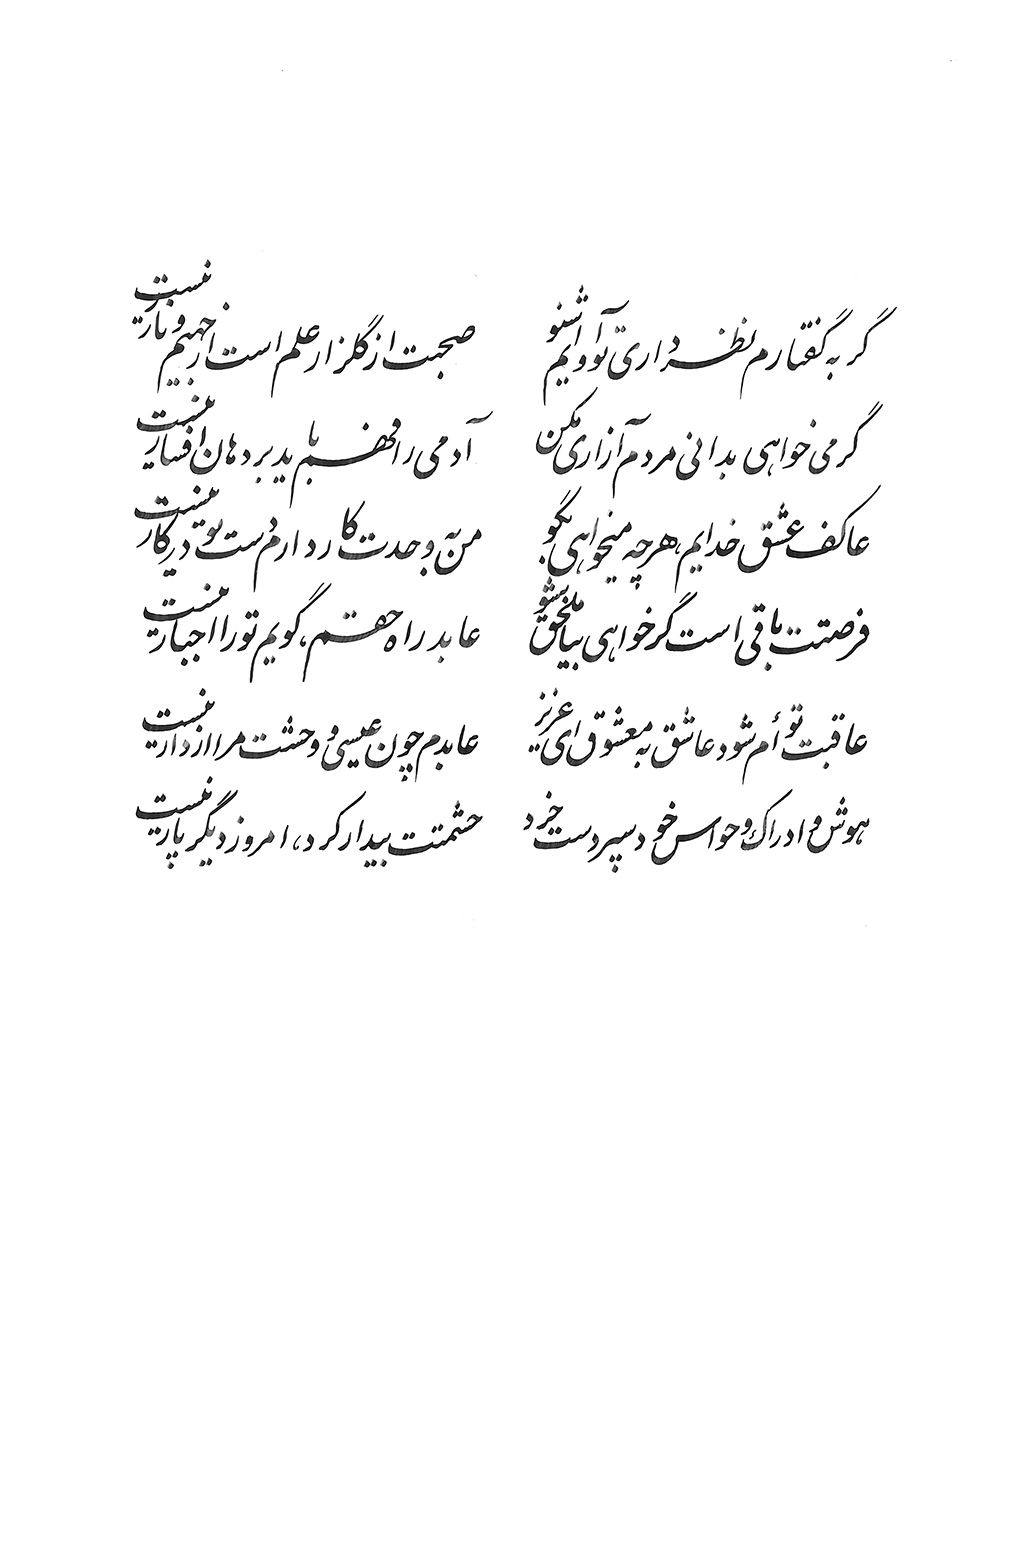 گر به گفتارم نظر داری تو آوایم شنو صحبت از گلزار علم است از جهیم و نار نیست
گر می خواهی بدانی مردم آزاری مکن آدمی را فهم باید بر دهان افسار نیست
عاکف عشق خدایم، هرچه میخواهی بگو من به وحدت کار دارم دست تو در کار نیست
فرصتت باقی است گر خواهی بیا ملحق بشو عابد راه حقم، گویم تو را اجبار نیست
عاقبت توأم شود عاشق به معشوق ای عزیز عابدم چون عیسی و وحشت مرا از دار نیست
هوش و ادراک و حواس خود سپردست خرد حشمتت بیدار کرد، امروز دیگر پار نیست